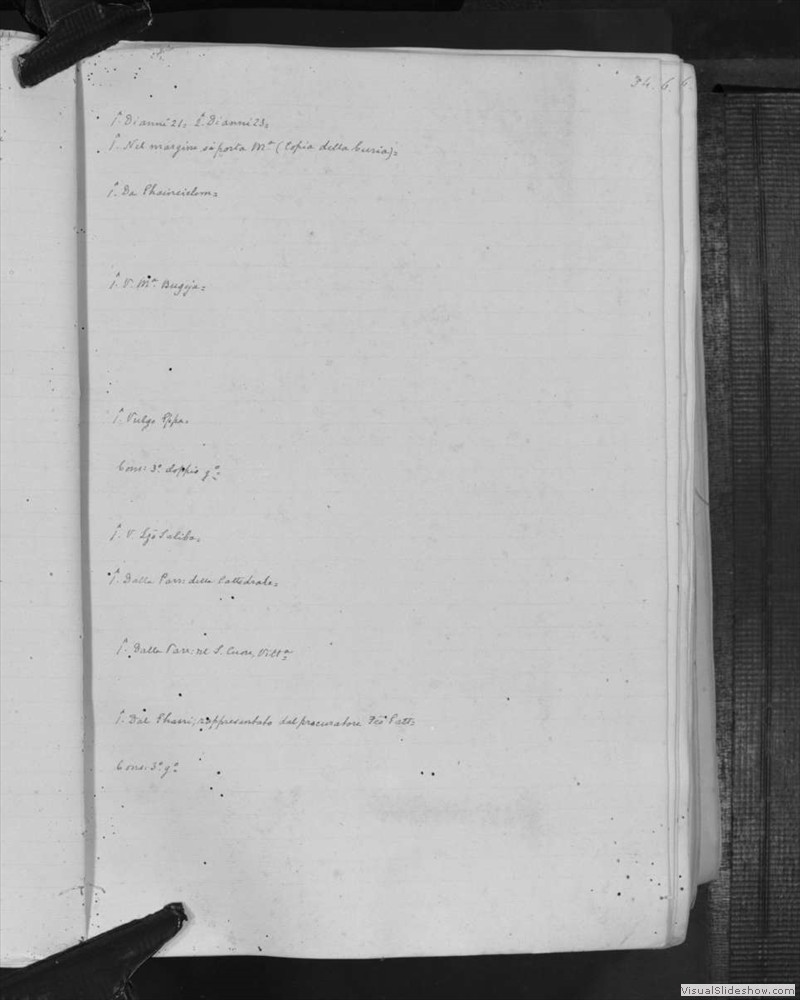 34. 6. 6.
1. Di anni 21. 2. Di anni 23.
1. Nel margine si porta Mª (Copia della Curia).
1. Da
1. V. Mª Bugeja.
1. Vulgo
Cons: 3º doppio gº
1. V. Saliba.
1. Dalla Parr: della Cattedrale.
1. Dalla Parr: del S. Cuore, Vittª
1. Dal rappresentato dal procuratore
Cons: 3º gº
VisualSlideshow.com